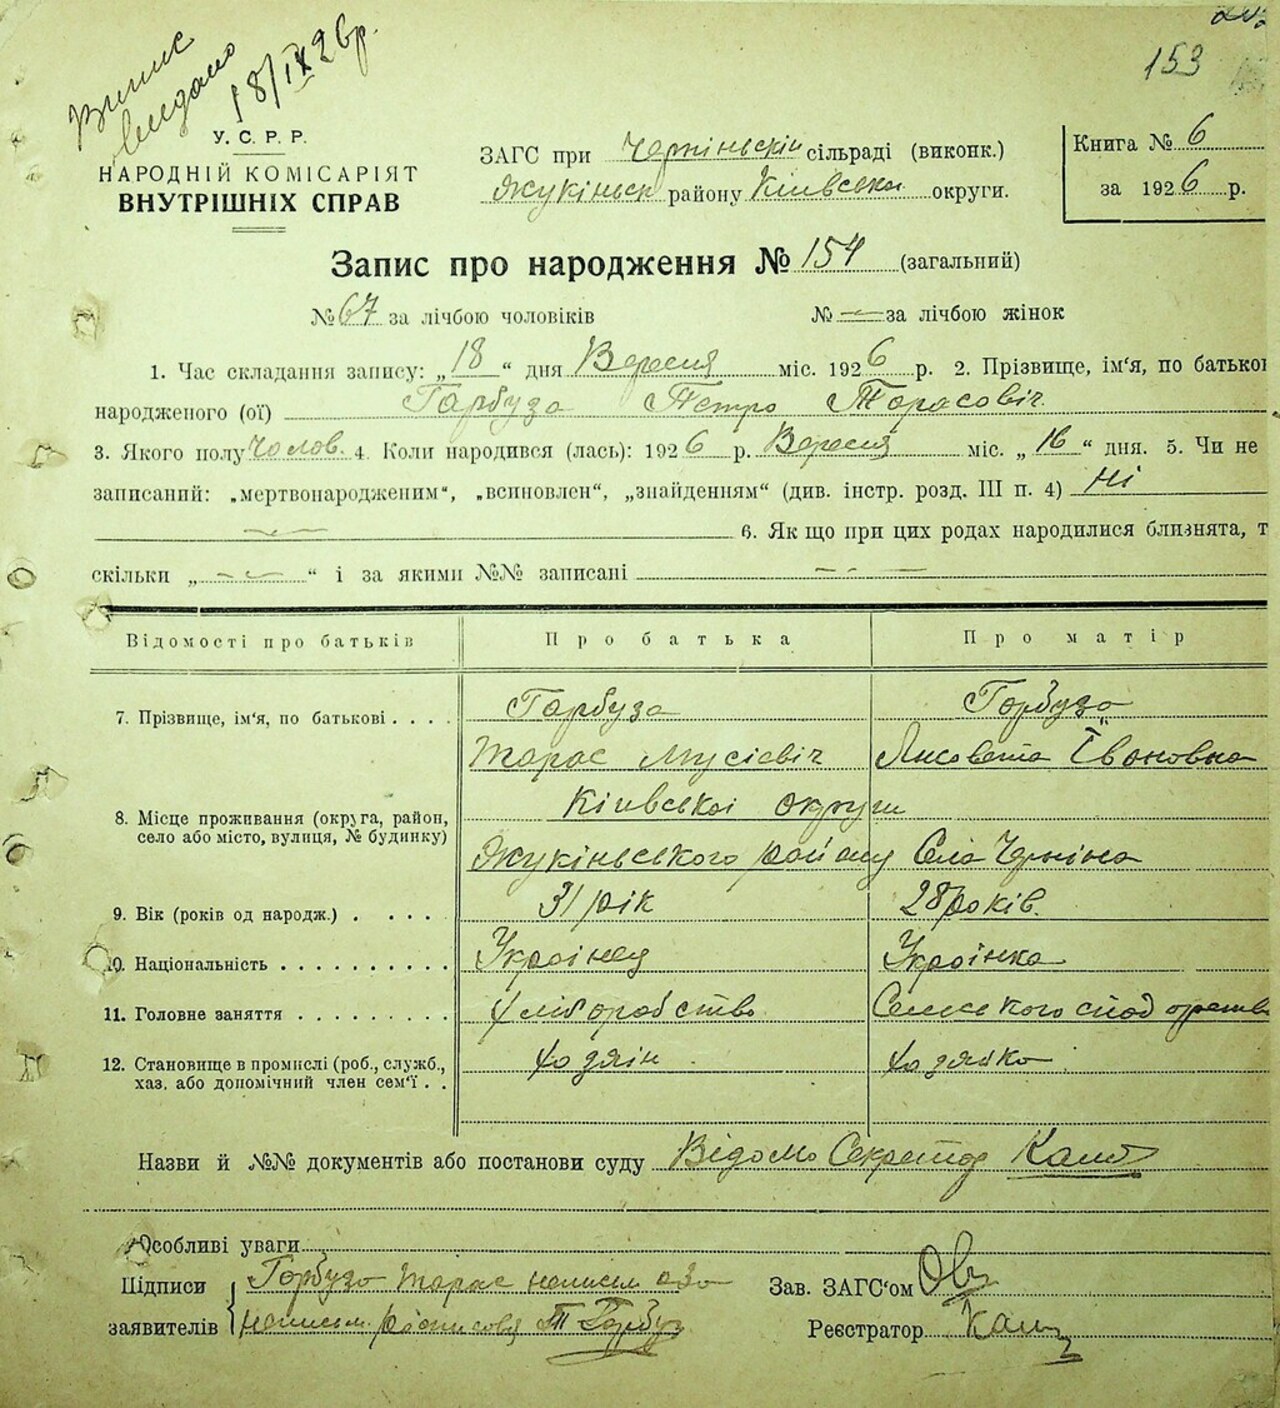 153
Випис
видано
18/IX 26р.
У. С. Р. Р.
НАРОДНІЙ КОМІСАРІЯТ
ВНУТРІШНІХ СПРАВ
ЗАГС при Чернінський сільраді (виконк.)
Жукінськ району Київськой округи.
Книга № 6
за 1926 р.
Запис про народження № 154 (загальний)
№ 67 за лічбою чоловіків № — за лічбою жінок
1. Час складання запису: „18“ дня Вересня міс. 1926 р. 2. Прізвище, ім‘я, по батькові
народженого (ої) Гарбуза Петро Тарасовіч
3. Якого полу Чолов. 4. Коли народився (лась): 1926 р. Вересня міс. „16“ дня. 5. Чи не
записаний: „мертвонародженим“, „всиновлен“, „знайденням“ (див. інстр. розд. III п. 4) Ні
6. Як що при цих родах народилися близнята, т
скільки „ — “ і за якими №№ записані —
Відомості про батьків Про батька Про матір
7. Прізвище, ім'я, по батькові . . . . Гарбуза Гарбуза
Тарас Мусієвіч Лисовета Івановна
8. Місце проживання (округа, район, Київської округи
село або місто, вулиця, № будинку) Жукінського району Села Черніна
9. Вік (років од народж.) . . . . 31 рік 28 років.
10. Національність . . . . . . . . . . Українец Українка
11. Головне заняття . . . . . . . . . хліборобство
12. Становище в промислі (роб., служб., хозяін хозяйка
хаз. або допомічний член сем‘ї . .
Назви й №№ документів або постанови суду Відомо Секретар
Особливі уваги
Підписи Гарбуза Тарас
заявителів Т Гарбуз
Зав. ЗАГС‘ом
Реєстратор